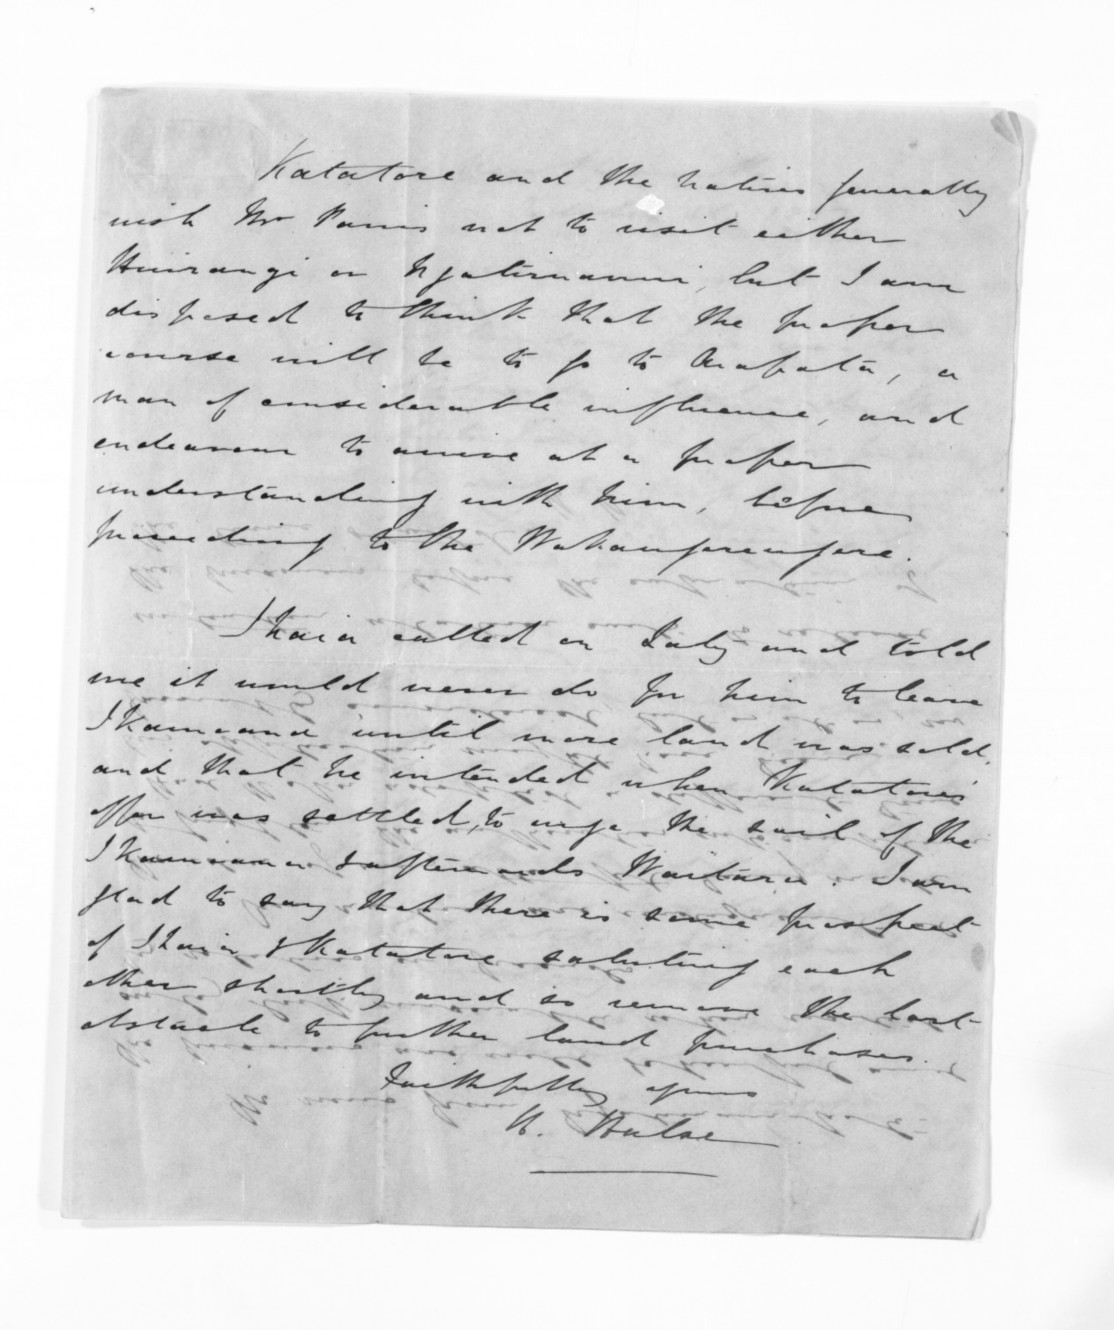 Katatore and the natives generally
wish Mr Parris not to visit either
Huirangi or Ngatimaru, but I am
disposed to think that the proper
course will be to go to Arapata, a
man of considerable influence, and
endeavour to arrive at a proper
understanding with him, before
proceeding to the Wakangerengere.
Ihaia called on Saty and told
me it would never do for him to leave
Ikamoana until more land was sold,
and that he intended when Katatore's
offer was settled, to urge the sail of the
Ikamoana & afterwards Waitara. I am
glad to say that there is some prospect
of Ihaia & Katatore saluting each
other shortly and so remove the last
obstacle to further land purchases.
Faithfully yours
H. Halse